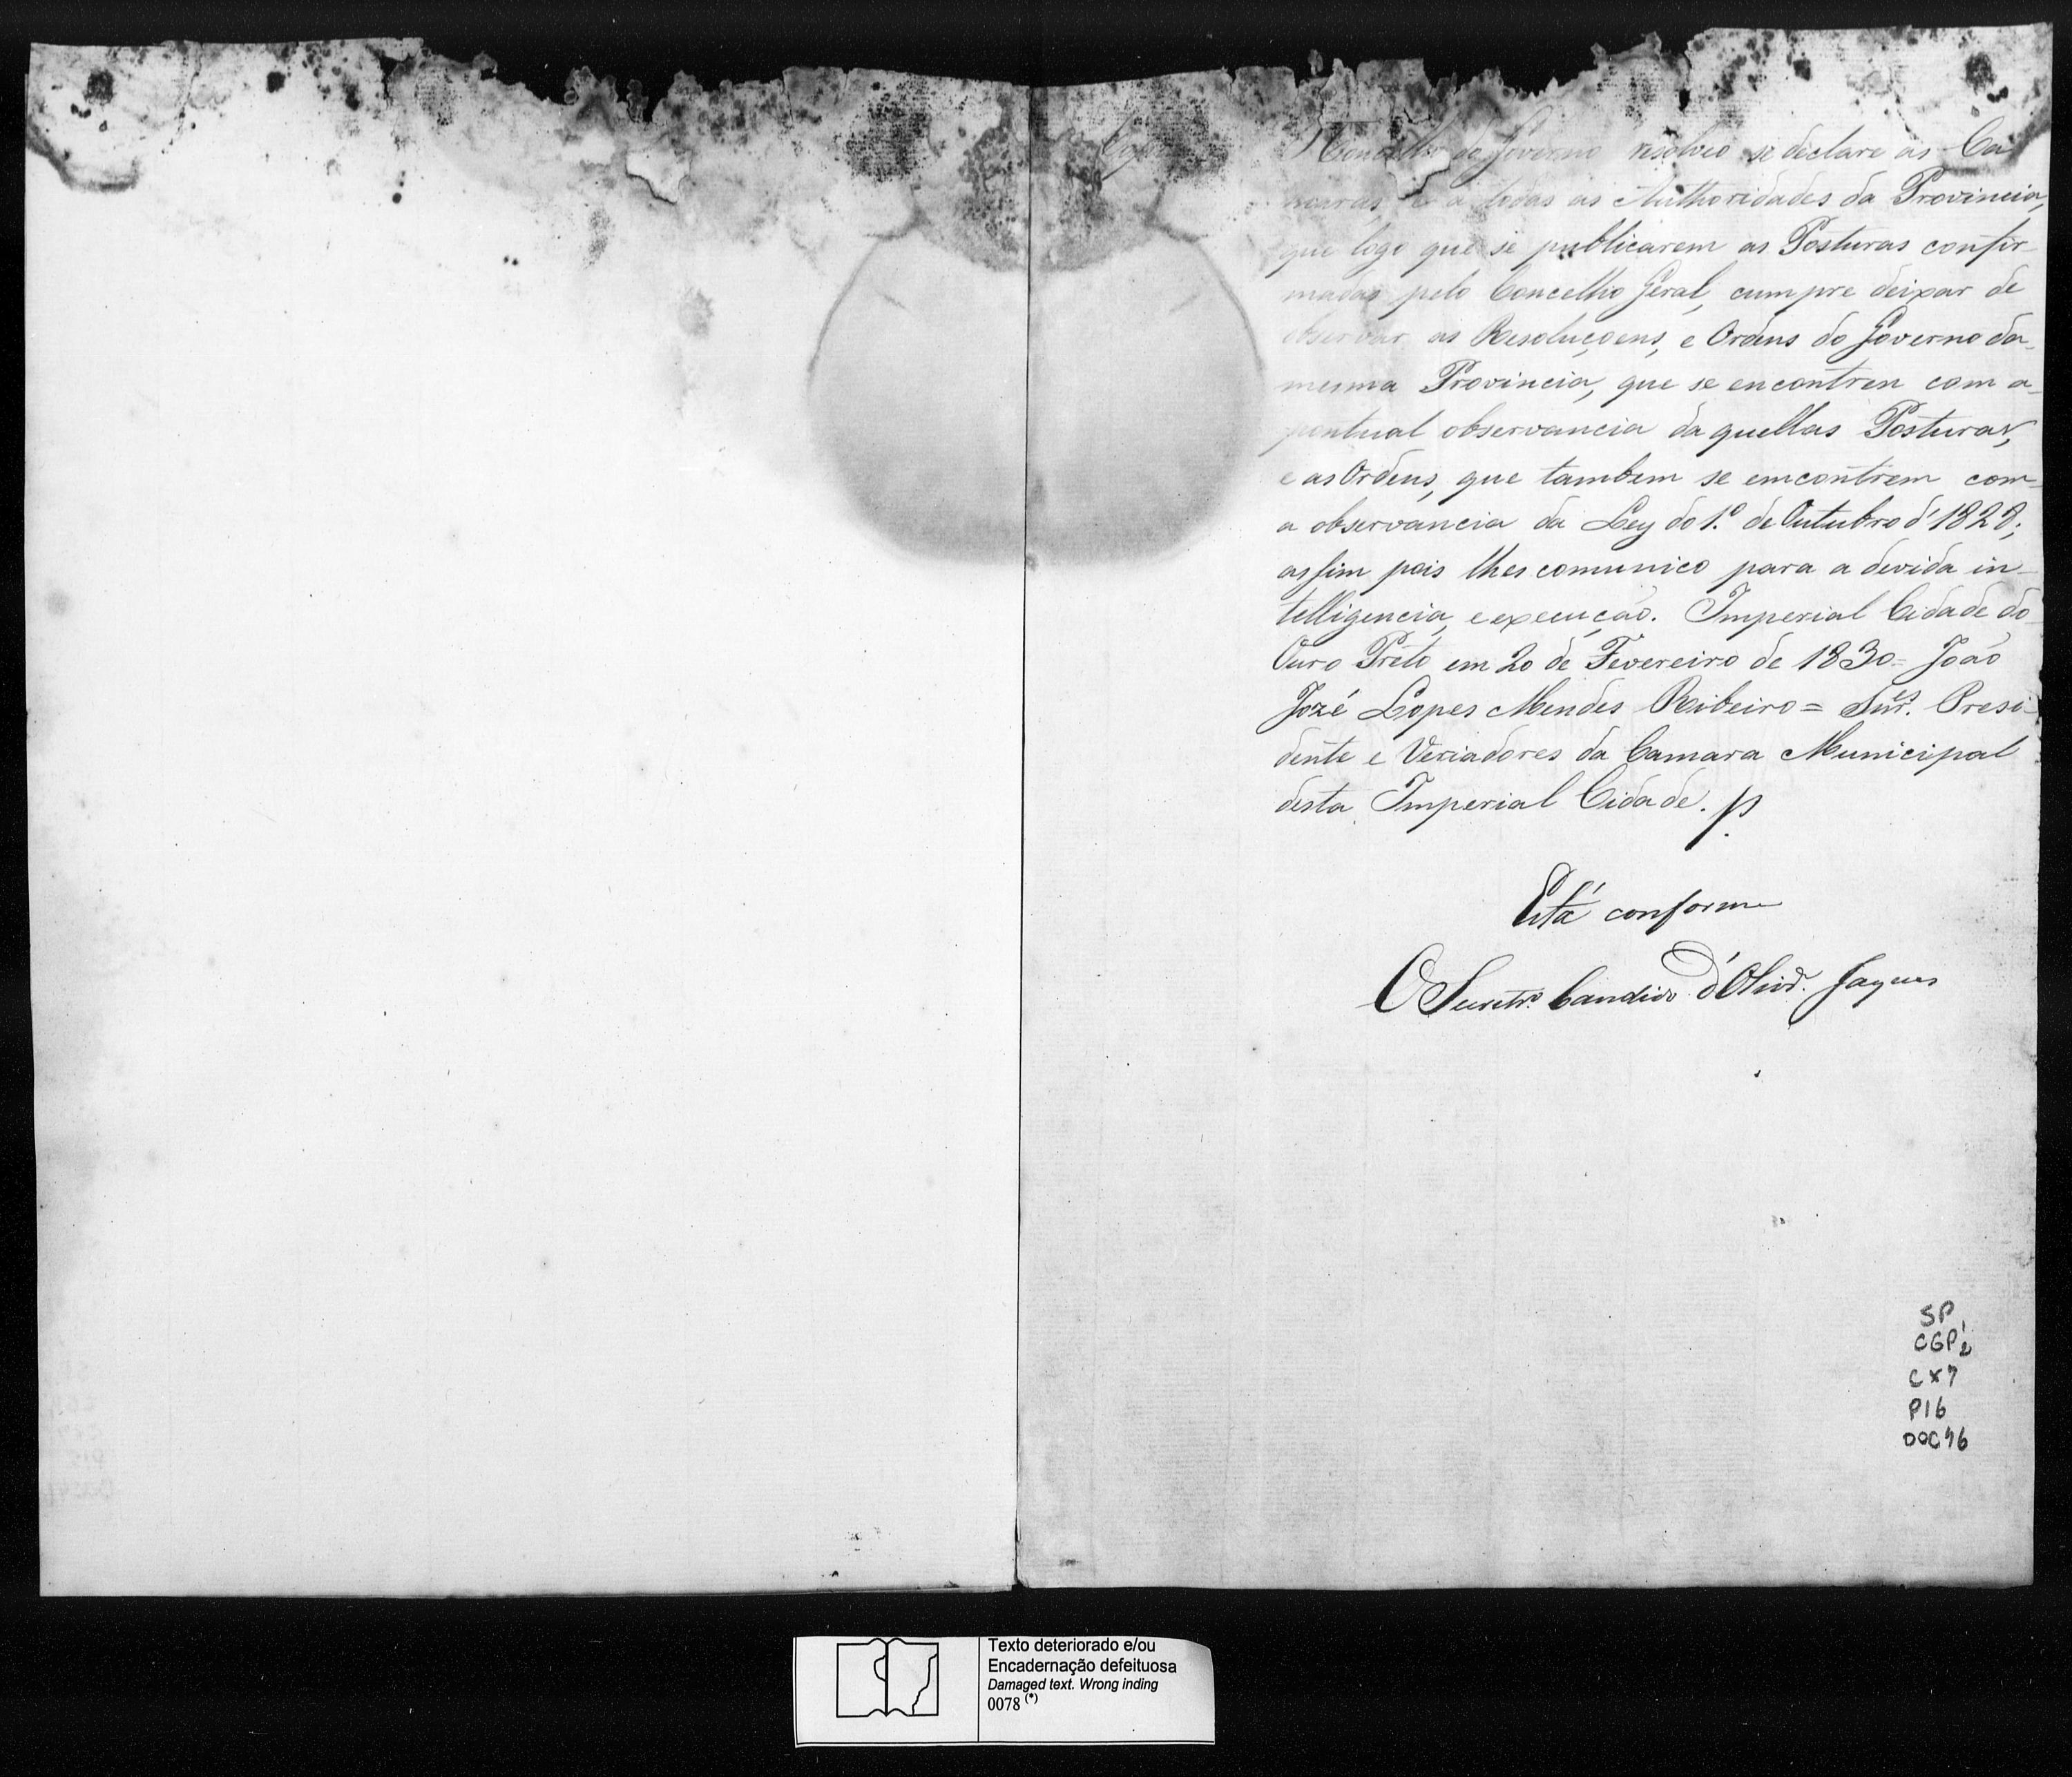 Copia
O Concelho do Governo resolveo se declare ás Ca-
maras e a todas as Authoridades da Provincia,
que logo que se publicarem as Posturas confir-
madas pelo Concelho Geral, cumpre deixar de
observar as Resoluçoens, e Ordens do Governo da
mesma Provincia, que se encontren com a
pontual observancia daquellas Posturas,
e as Ordens, que tambem se emcontrem com
a observancia da Ley do 1.º de Outubro d'1828;
assim pois lhes comunico para a devida in-
telligencia, e execução. Imperial Cidade do
Ouro Preto em 20 de Fevereiro de 1830 = João
Jozé Lopes Mendes Ribeiro = Snr.es Presi-
dente e Veriadores da Camara Municipal
desta Imperial Cidade.
Está conforme
O Secretr.o Candido d'Olivr.a Jaques
SP
CGP 1/2
CX7
P16
DOC76
Texto deteriorado e/ou
Encadernação defeituosa
Damaged text. Wrong inding
0078 (*)